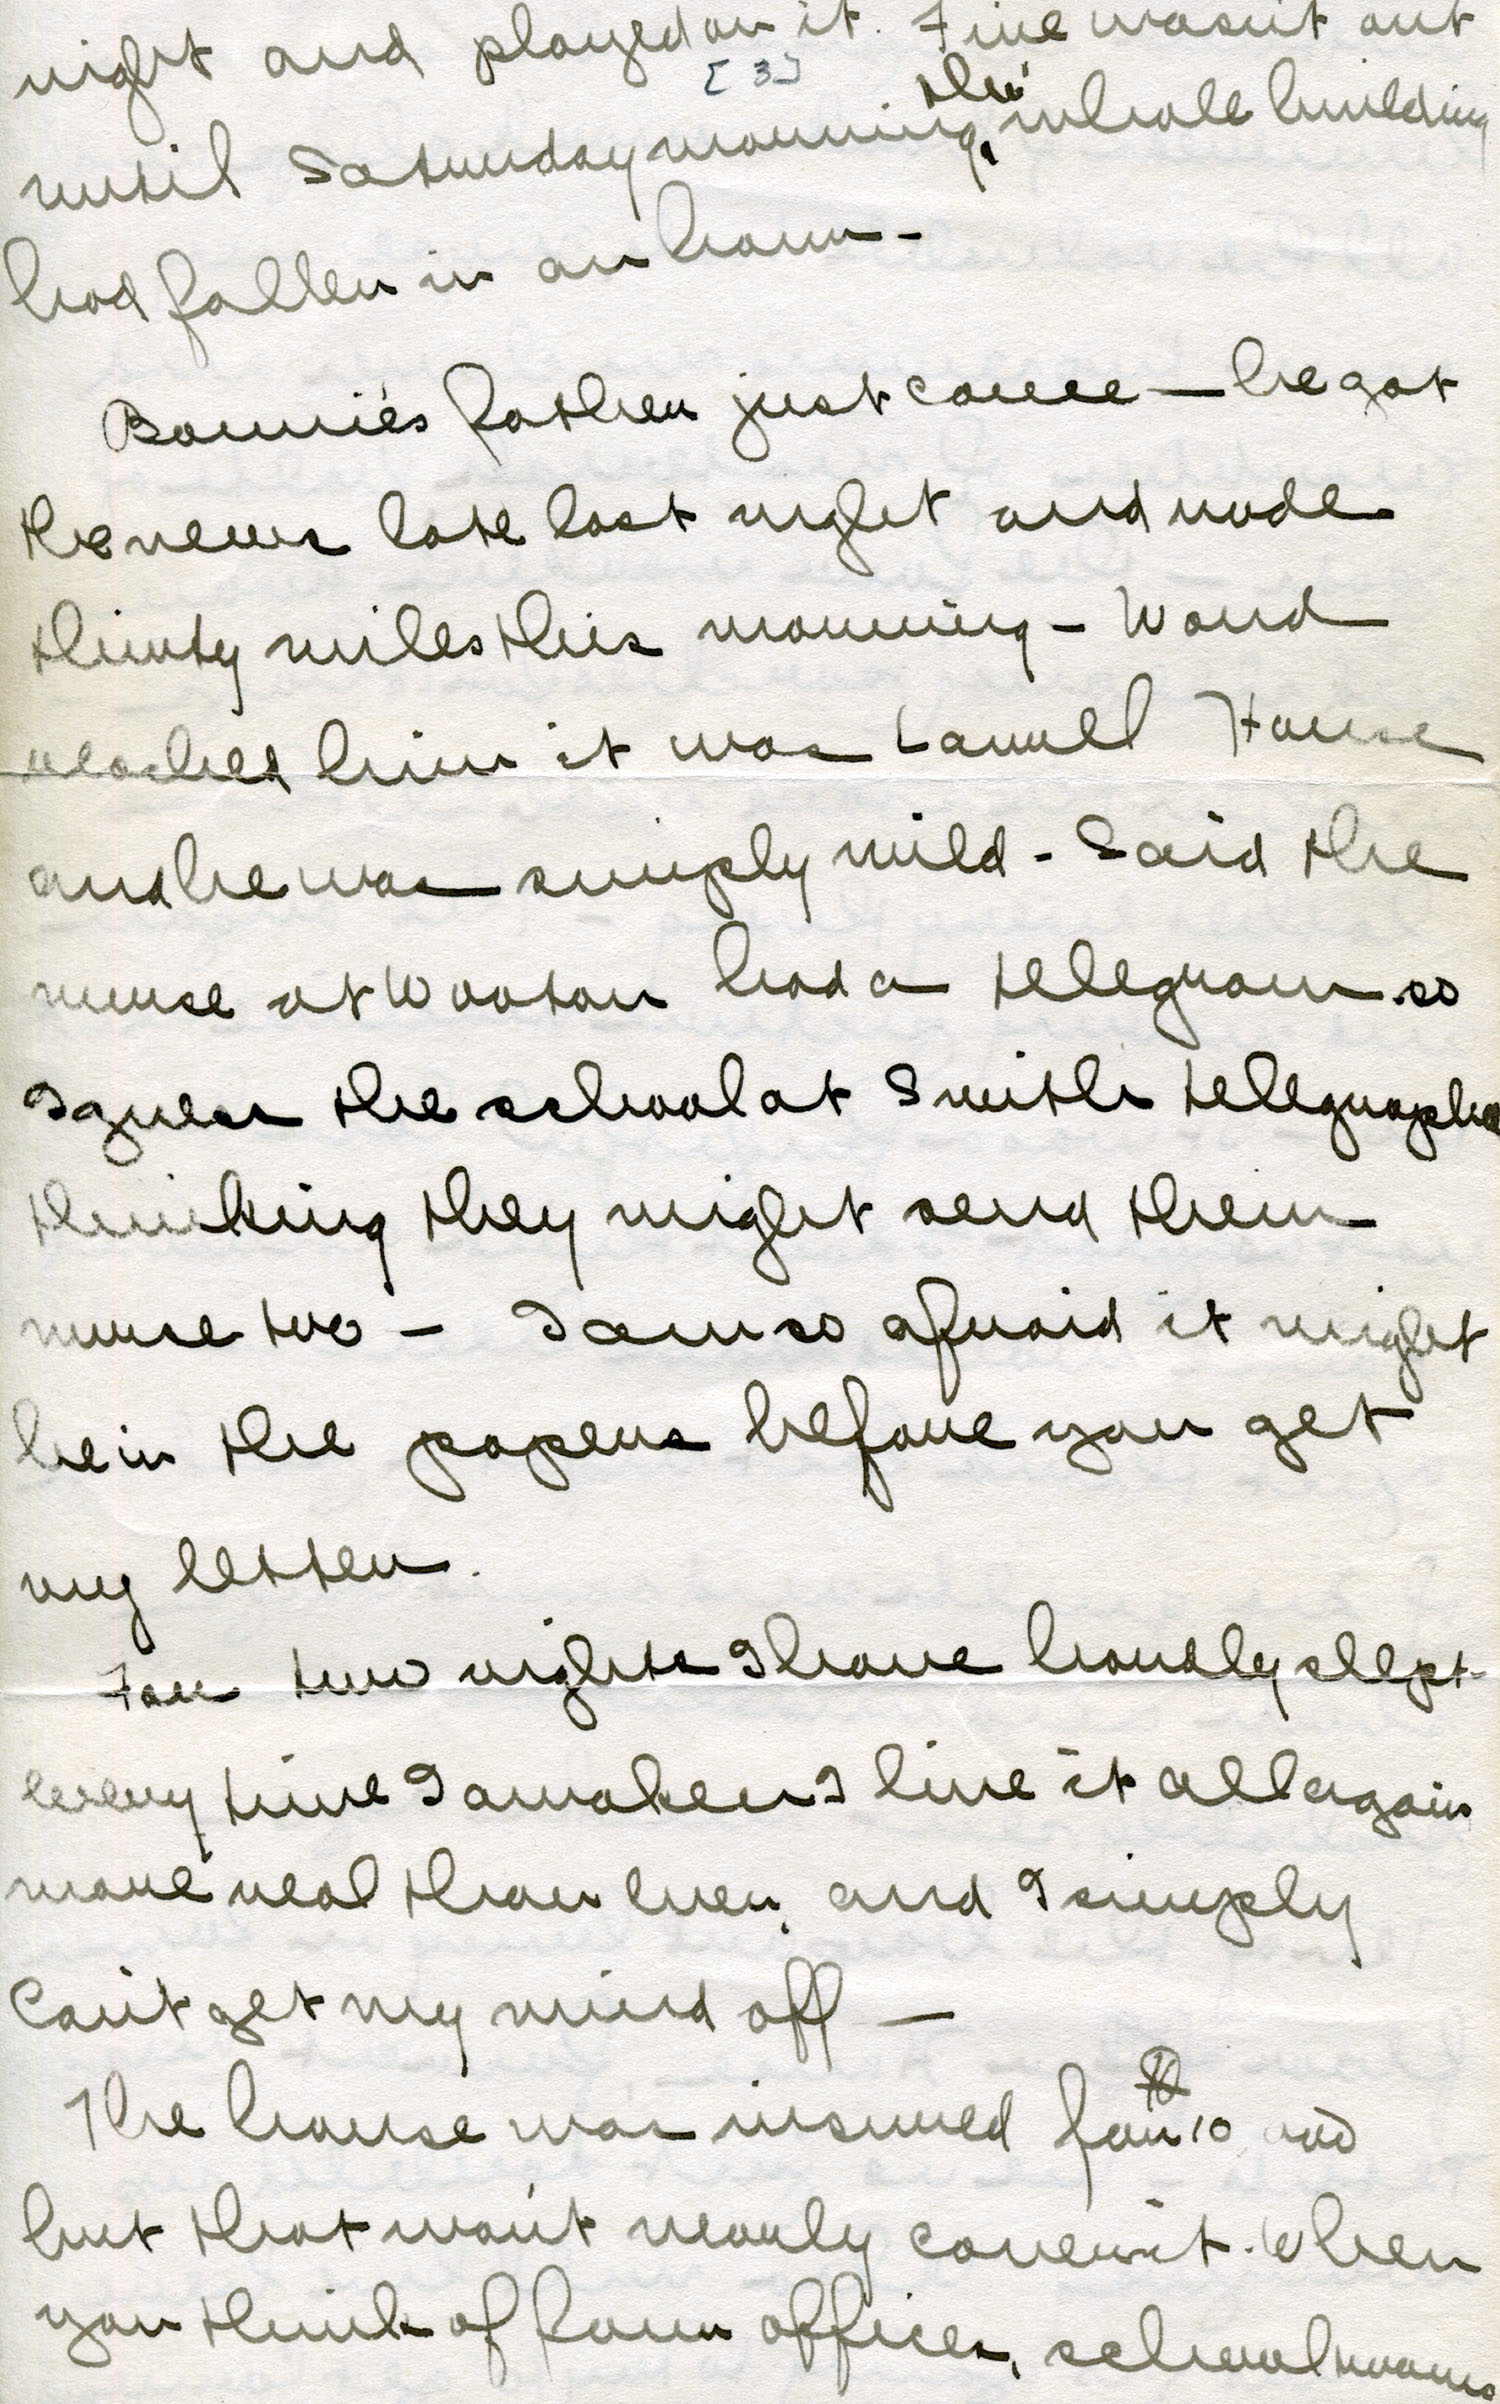 night and played on it. Fire wasn't out
[3]
until Saturday morning, the whole building
had fallen in an hour -
Bonnie's father just came - he got
the news late last night and rode
thirty miles this morning - Word
reached him it was Laurel House
and he was simply wild - Said the
nurse at Wooton had a telegram so
I guess the school at Smith telegraphed
thinking they might send them
nurse two - I am so afraid it might
be in the papers before you get
my letter.
For two nights I have hardly slept -
every time I awaken I live it all again
more real than ever, and I simply
can't get my mind off -
The house was insured for 10,000
but that won't nearly cover it. When
you think of four offices, schoolrooms